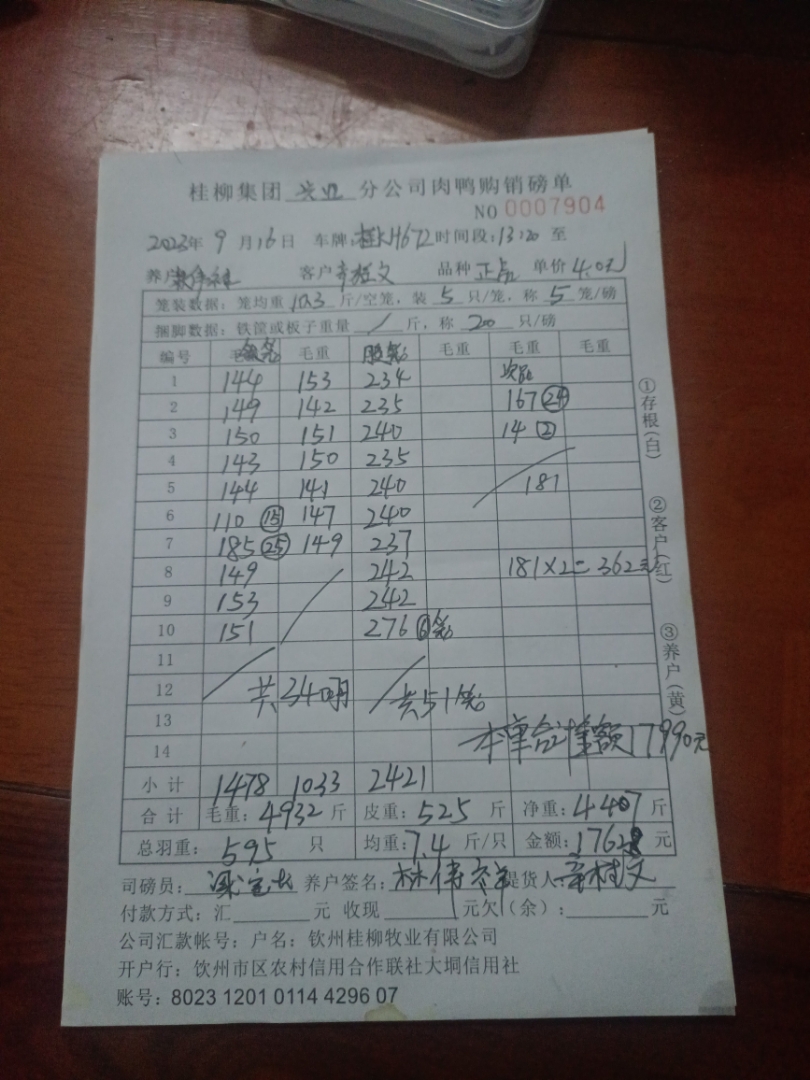 桂柳集团 兴业 分公司肉鸭购销磅单
NO 0007904
2023年 9 月 16 日 车牌: H672 时间段: 13:20 至
养户 客户 文 品种 正品 单价 4.0元
笼装数据: 笼均重 10.3 斤/空笼, 装 5 只/笼, 称 5 笼/磅
捆脚数据: 铁筐或板子重量 / 斤, 称 200 只/磅
编号 毛重 毛重 毛重 毛重 毛重
1 144 153 234
2 149 142 235 167 24
3 150 151 240 14 2
4 143 150 235
5 144 141 240 181
6 110 15 147 240
7 185 25 149 237
8 149 242 181×2=362元
9 153 242
10 151 276 6笼
11
12 共34 共51笼
13 本单合计金额17990元
14
小计 1478 1033 2421
合计 毛重: 4932 斤 皮重: 525 斤 净重: 4407 斤
总羽重: 595 只 均重: 7.4 斤/只 金额: 17628 元
司磅员: 养户签名: 林伟 提货人: 文
付款方式: 汇 元 收现 元欠(余): 元
公司汇款帐号: 户名: 钦州桂柳牧业有限公司
开户行: 饮州市区农村信用合作联社大垌信用社
账号: 8023 1201 0114 4296 07
①存根(白)
②客户(红)
③养户(黄)